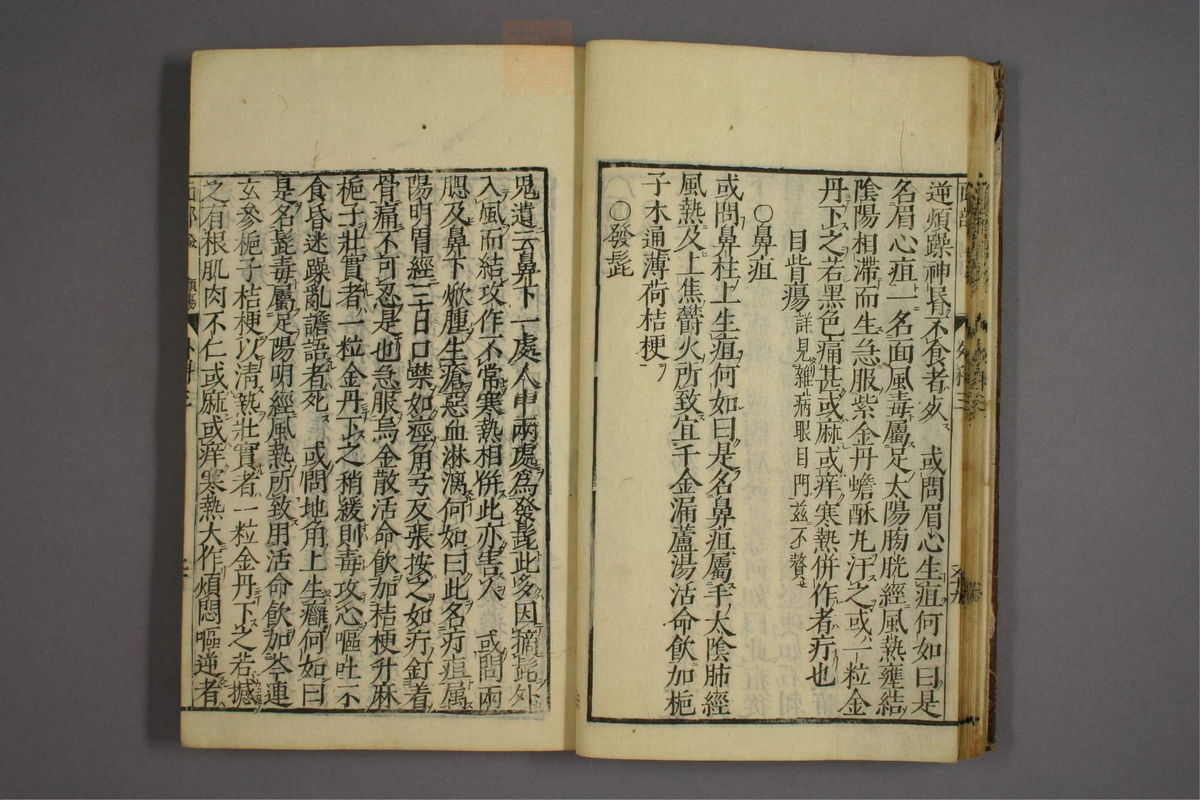 逆煩躁神昏不食者死　或問眉心生疽何如曰是
名眉心疽一名面風毒屬足太陽膀胱經風熱壅結
陰陽相滯而生急服紫金丹蟾酥丸汗之或一粒金
丹下之若黑色痛甚或麻或痒寒熱併作者疔也
目眥瘍詳見雜病眼目門茲不贅
〇鼻疽
或問鼻柱上生疽何如曰是名鼻疽屬手太陰肺經
風熱及上焦鬱火所致宜千金漏蘆湯活命飲加梔
子木通薄荷桔梗
〇發髭
鬼遺云鼻下一處人中兩處為發髭此多因摘髭外
入風而結攻作不常寒熱相併此亦害人　或問兩
腮及鼻下焮腫生瘡惡血淋漓何如曰此名疔疽属
陽明胃經二三日口禁如痙角弓反張按之如疔釘着
骨痛不可忍是也急服烏金散活命飲加桔梗升麻
梔子壯實者一粒金丹下之稍緩則毒攻心嘔吐不
食昏迷躁亂譫語者死　或問地角上生癰何如曰
是名髭毒屬足陽明經風熱所致用活命飲加芩連
玄參梔子桔梗以清熱壯實者一粒金丹下之若撼
之有根肌肉不仁或麻或痒寒熱大作煩悶嘔逆者